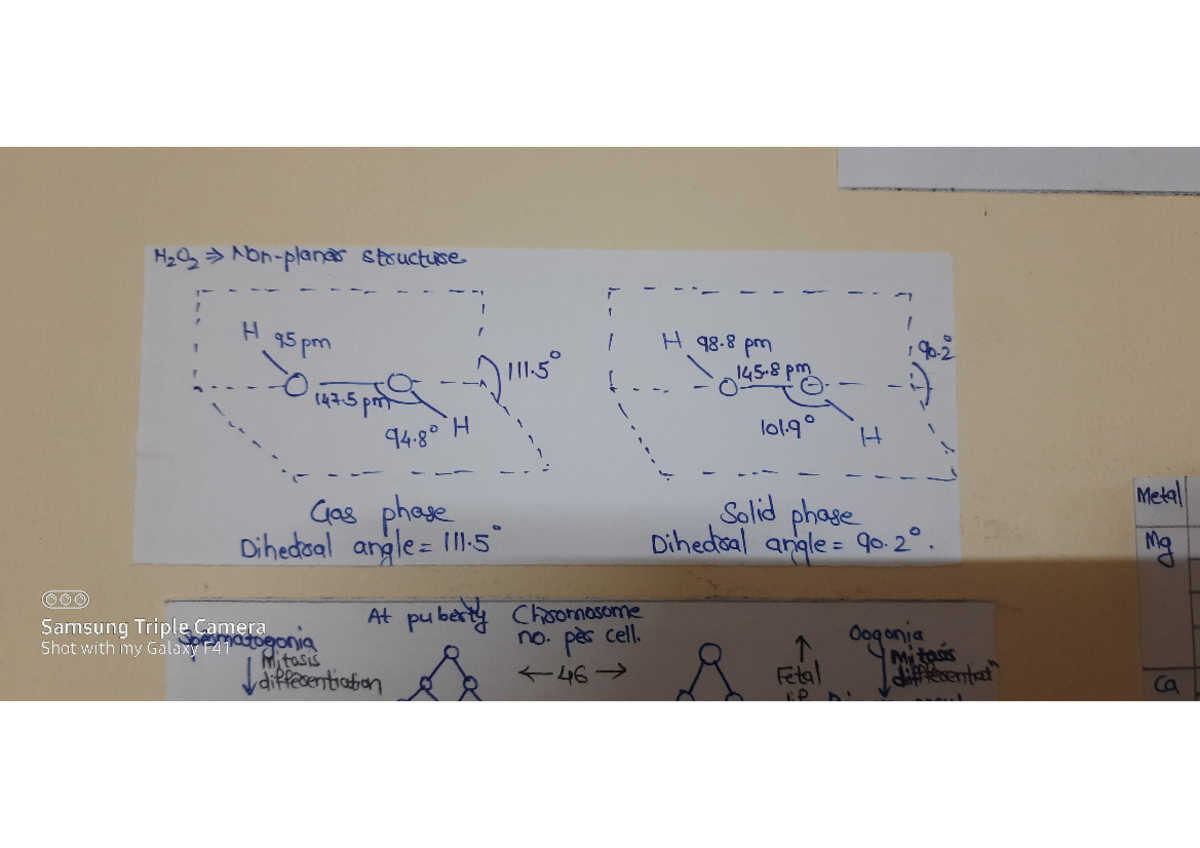 H₂O₂ ⇒ Non-planar structure
H 95 pm
147.5 pm
94.8° H
111.5°
Gas phase
Dihedral angle = 111.5°
H 98.8 pm
145.8 pm
101.9°
H
90.2°
Solid phase
Dihedral angle = 90.2°.
Metal
Mg
Ca
Samsung Triple Camera
Shot with my Galaxy F41
At puberty Chromosome
no. per cell.
Spermatogonia
Mitosis
differentiation
← 46 →
Fetal
Oogonia
Mitosis
differentiatⁿ